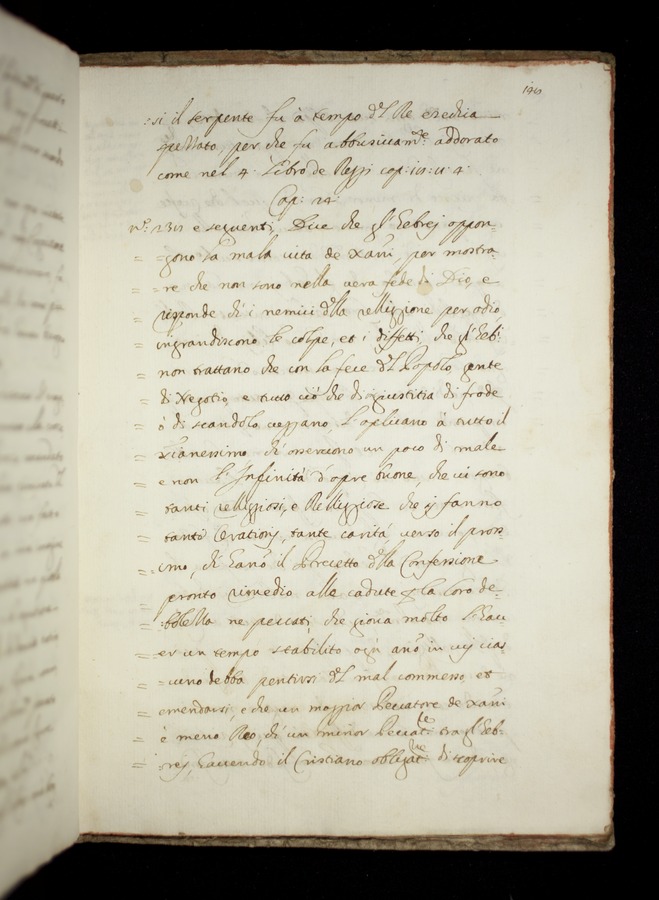 :si il serpente fu à tempo d'l Re
spezzato, per che fu abbusivam.te addorato
come nel 4. Libro de Reggi cap:
Cap: 24.
e seguenti, Dice che gl'Hebrej oppon-
= = gono la mala vita de Xani, per mostra-
= = re che non sono nella vera fede di Dio, e
= risponde ch'i nemici d'lla relliggione per odio,
= ingrandiscono le colpe, et i diffetti, che gl'Heb:
= non trattano che con la fece d'l Popolo, gente
= di Negotio, e tutto ciò che d'ingiustitia di frode
= ò di scandolo veggano l'aplicano à tutto il
= Xianesimo ch'osservono un poco di male
= e non l'Infinità d'opre buone, che vi sono
= tanti relligiosi, e Relliggiose che ij fanno
= tante Orationj, tante carità, verso il pross
= =imo, ch'hanò il Precetto d'lla Confessione
= pronto rimedio alle cadute p la loro de-
= :bolezza ne peccati, che giova molto l'hav
= er un tempo stabilito ogni anò in cuj cias
= =cuno debba pentirsi d'l mal commesso, et
= emendarsi, e che un maggior Peccatore de Xani
= è meno Reo, ch'un minor Peccat.re tra gl'Heb-
= :rej, havendo il Cristiano di scoprire